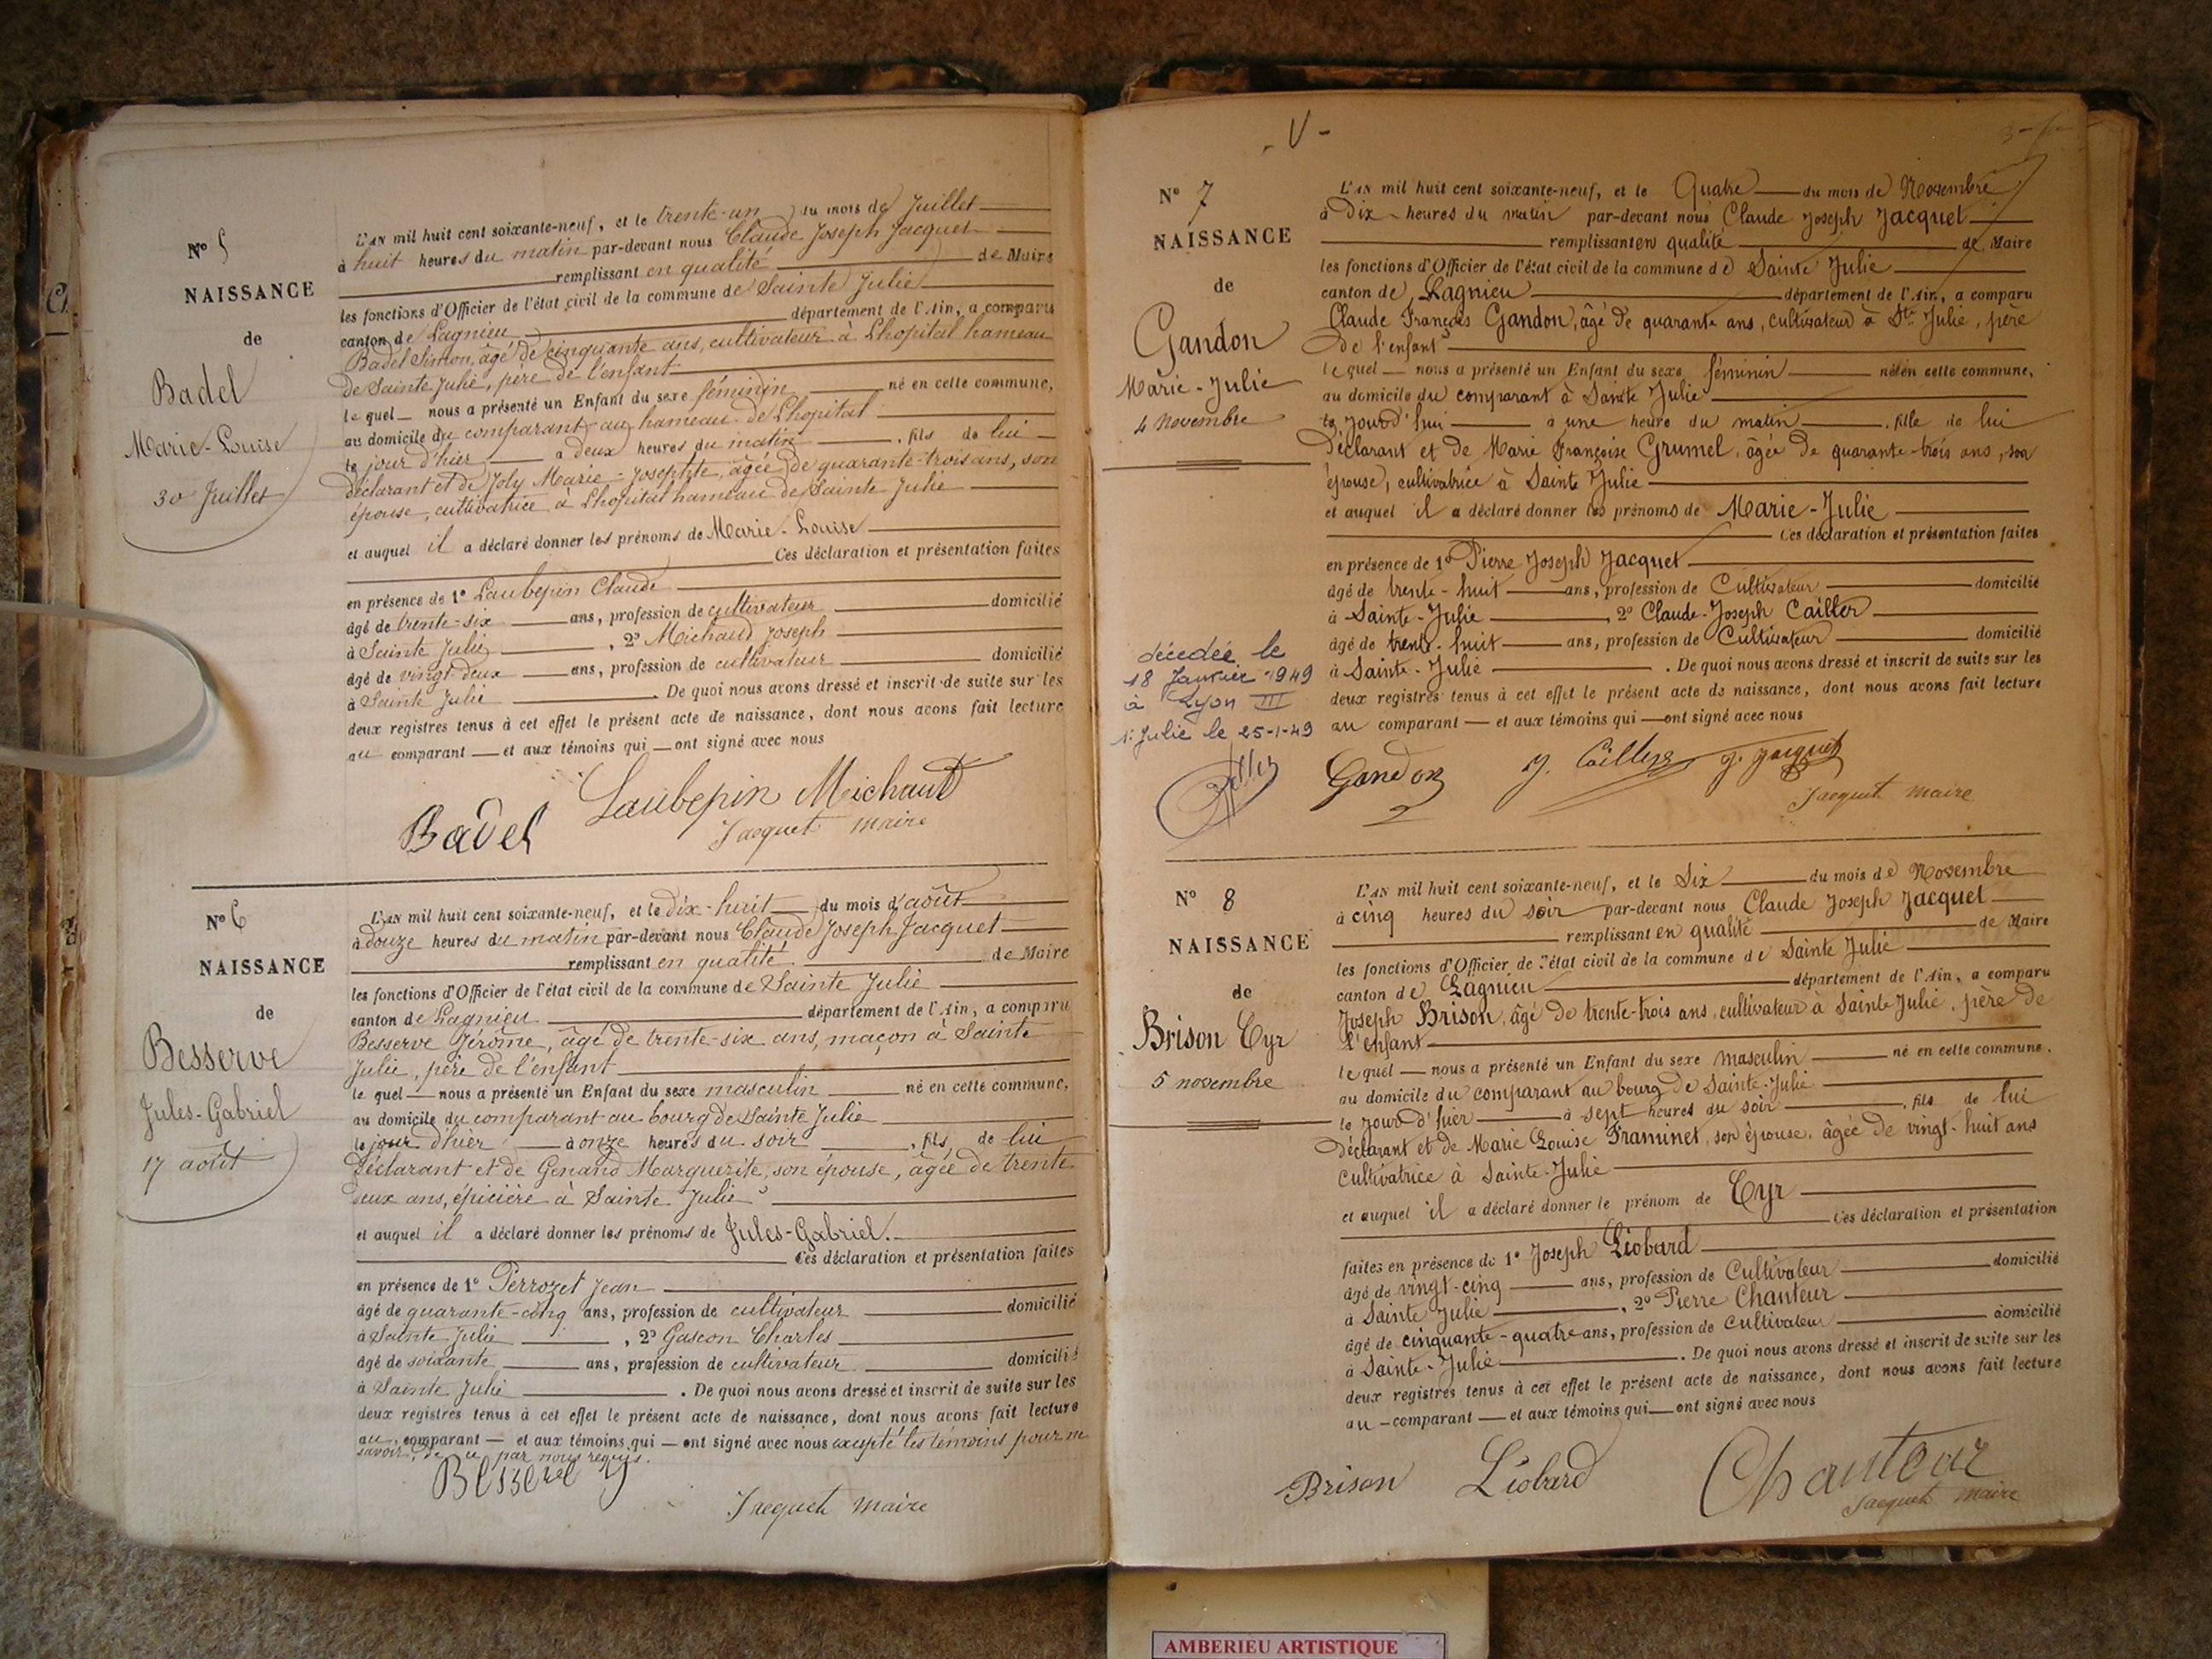 N° 5
NAISSANCE
de
Badel
Marie-Louise
30 Juillet
L'AN mil huit cent soixante-neuf, et le trente-un du mois de Juillet
à huit heures du matin par-devant nous Claude Joseph Jacquet
remplissant en qualité de Maire
les fonctions d'Officier de l'état civil de la commune de Sainte Julie
canton de Lagnieu département de l'Ain, a comparu
Badel Simon, âgé de cinquante ans, cultivateur à Lhopital hameau
de Sainte Julie, père de l'enfant
le quel nous a présenté un Enfant du sexe féminin né en cette commune,
au domicile du comparant au hameau de Lhopital
le jour d'hier à deux heures du matin, fils de lui
déclarant et de Joly Marie-Josephte, âgée de quarante-trois ans, son
épouse, cultivatrice à Lhopital hameau de Sainte Julie
et auquel il a déclaré donner les prénoms de Marie-Louise
Ces déclaration et présentation faites
en présence de 1° Laubepin Claude
âgé de trente-six ans, profession de cultivateur domicilié
à Sainte Julie, 2° Michaud Joseph
âgé de vingt-deux ans, profession de cultivateur domicilié
à Sainte Julie. De quoi nous avons dressé et inscrit de suite sur les
deux registres tenus à cet effet le présent acte de naissance, dont nous avons fait lecture
au comparant et aux témoins qui ont signé avec nous
Laubepin Michaut
Badel Jacquet maire
N° 6
NAISSANCE
de
Besserve
Jules-Gabriel
17 août
L'AN mil huit cent soixante-neuf, et le dix-huit du mois d'août
à douze heures du matin par-devant nous Claude Joseph Jacquet
remplissant en qualité de Maire
les fonctions d'Officier de l'état civil de la commune de Sainte Julie
canton de Lagnieu département de l'Ain, a comparu
Besserve Jérôme, âgé de trente-six ans, maçon à Sainte
Julie, père de l'enfant
le quel nous a présenté un Enfant du sexe masculin né en cette commune,
au domicile du comparant au bourg de Sainte Julie
le jour d'hier à onze heures du soir, fils de lui
déclarant et de Genand Marguerite, son épouse, âgée de trente
deux ans, épicière à Sainte Julie
et auquel il a déclaré donner les prénoms de Jules-Gabriel.
Ces déclaration et présentation faites
en présence de 1° Perrozet Jean
âgé de quarante-cinq ans, profession de cultivateur domicilié
à Sainte Julie, 2° Gascon Charles
âgé de soixante ans, profession de cultivateur domicilié
à Sainte Julie. De quoi nous avons dressé et inscrit de suite sur les
deux registres tenus à cet effet le présent acte de naissance, dont nous avons fait lecture
au comparant et aux témoins qui ont signé avec nous excepté les témoins pour ne
savoir, de ce par nous requis.
Besserve
Jacquet maire
- V -
N° 7
NAISSANCE
de
Gandon
Marie-Julie
4 Novembre
décédée le
18 Janvier 1949
à Lyon III
Julie le 25-1-49
L'AN mil huit cent soixante-neuf, et le Quatre du mois de Novembre
à Dix heures du matin par-devant nous Claude Joseph Jacquet
remplissant en qualité de Maire
les fonctions d'Officier de l'état civil de la commune de Sainte Julie
canton de Lagnieu département de l'Ain, a comparu
Claude François Gandon, âgé de quarante ans, cultivateur à Ste Julie, père
de l'enfant
le quel nous a présenté un Enfant du sexe féminin né en cette commune,
au domicile du comparant à Sainte Julie
le jour d'hui à une heure du matin, fille de lui
déclarant et de Marie Françoise Grumel, âgée de quarante-trois ans, son
épouse, cultivatrice à Sainte Julie
et auquel il a déclaré donner les prénoms de Marie-Julie
Ces déclaration et présentation faites
en présence de 1° Pierre Joseph Jacquet
âgé de trente-huit ans, profession de Cultivateur domicilié
à Sainte-Julie, 2° Claude-Joseph Cailler
âgé de trente-huit ans, profession de Cultivateur domicilié
à Sainte-Julie. De quoi nous avons dressé et inscrit de suite sur les
deux registres tenus à cet effet le présent acte de naissance, dont nous avons fait lecture
au comparant et aux témoins qui ont signé avec nous
Gandon J. Cailler J. Jacquet
Jacquet maire
N° 8
NAISSANCE
de
Brison Cyr
5 novembre
L'AN mil huit cent soixante-neuf, et le Six du mois de Novembre
à cinq heures du soir par-devant nous Claude Joseph Jacquet
remplissant en qualité de Maire
les fonctions d'Officier de l'état civil de la commune de Sainte Julie
canton de Lagnieu département de l'Ain, a comparu
Joseph Brison, âgé de trente-trois ans, cultivateur à Sainte Julie, père de
l'enfant
le quel nous a présenté un Enfant du sexe masculin né en cette commune.
au domicile du comparant au bourg de Sainte-Julie
le jour d'hier à sept heures du soir, fils de lui
déclarant et de Marie Louise Framinet, son épouse, âgée de vingt-huit ans
cultivatrice à Sainte-Julie
et auquel il a déclaré donner le prénom de Cyr
Ces déclaration et présentation
faites en présence de 1° Joseph Liobard
âgé de vingt-cinq ans, profession de Cultivateur domicilié
à Sainte Julie, 2° Pierre Chanteur
âgé de cinquante-quatre ans, profession de Cultivateur domicilié
à Sainte-Julie. De quoi nous avons dressé et inscrit de suite sur les
deux registres tenus à cet effet le présent acte de naissance, dont nous avons fait lecture
au comparant et aux témoins qui ont signé avec nous
Brison Liobard Chanteur
Jacquet maire
AMBERIEU ARTISTIQUE